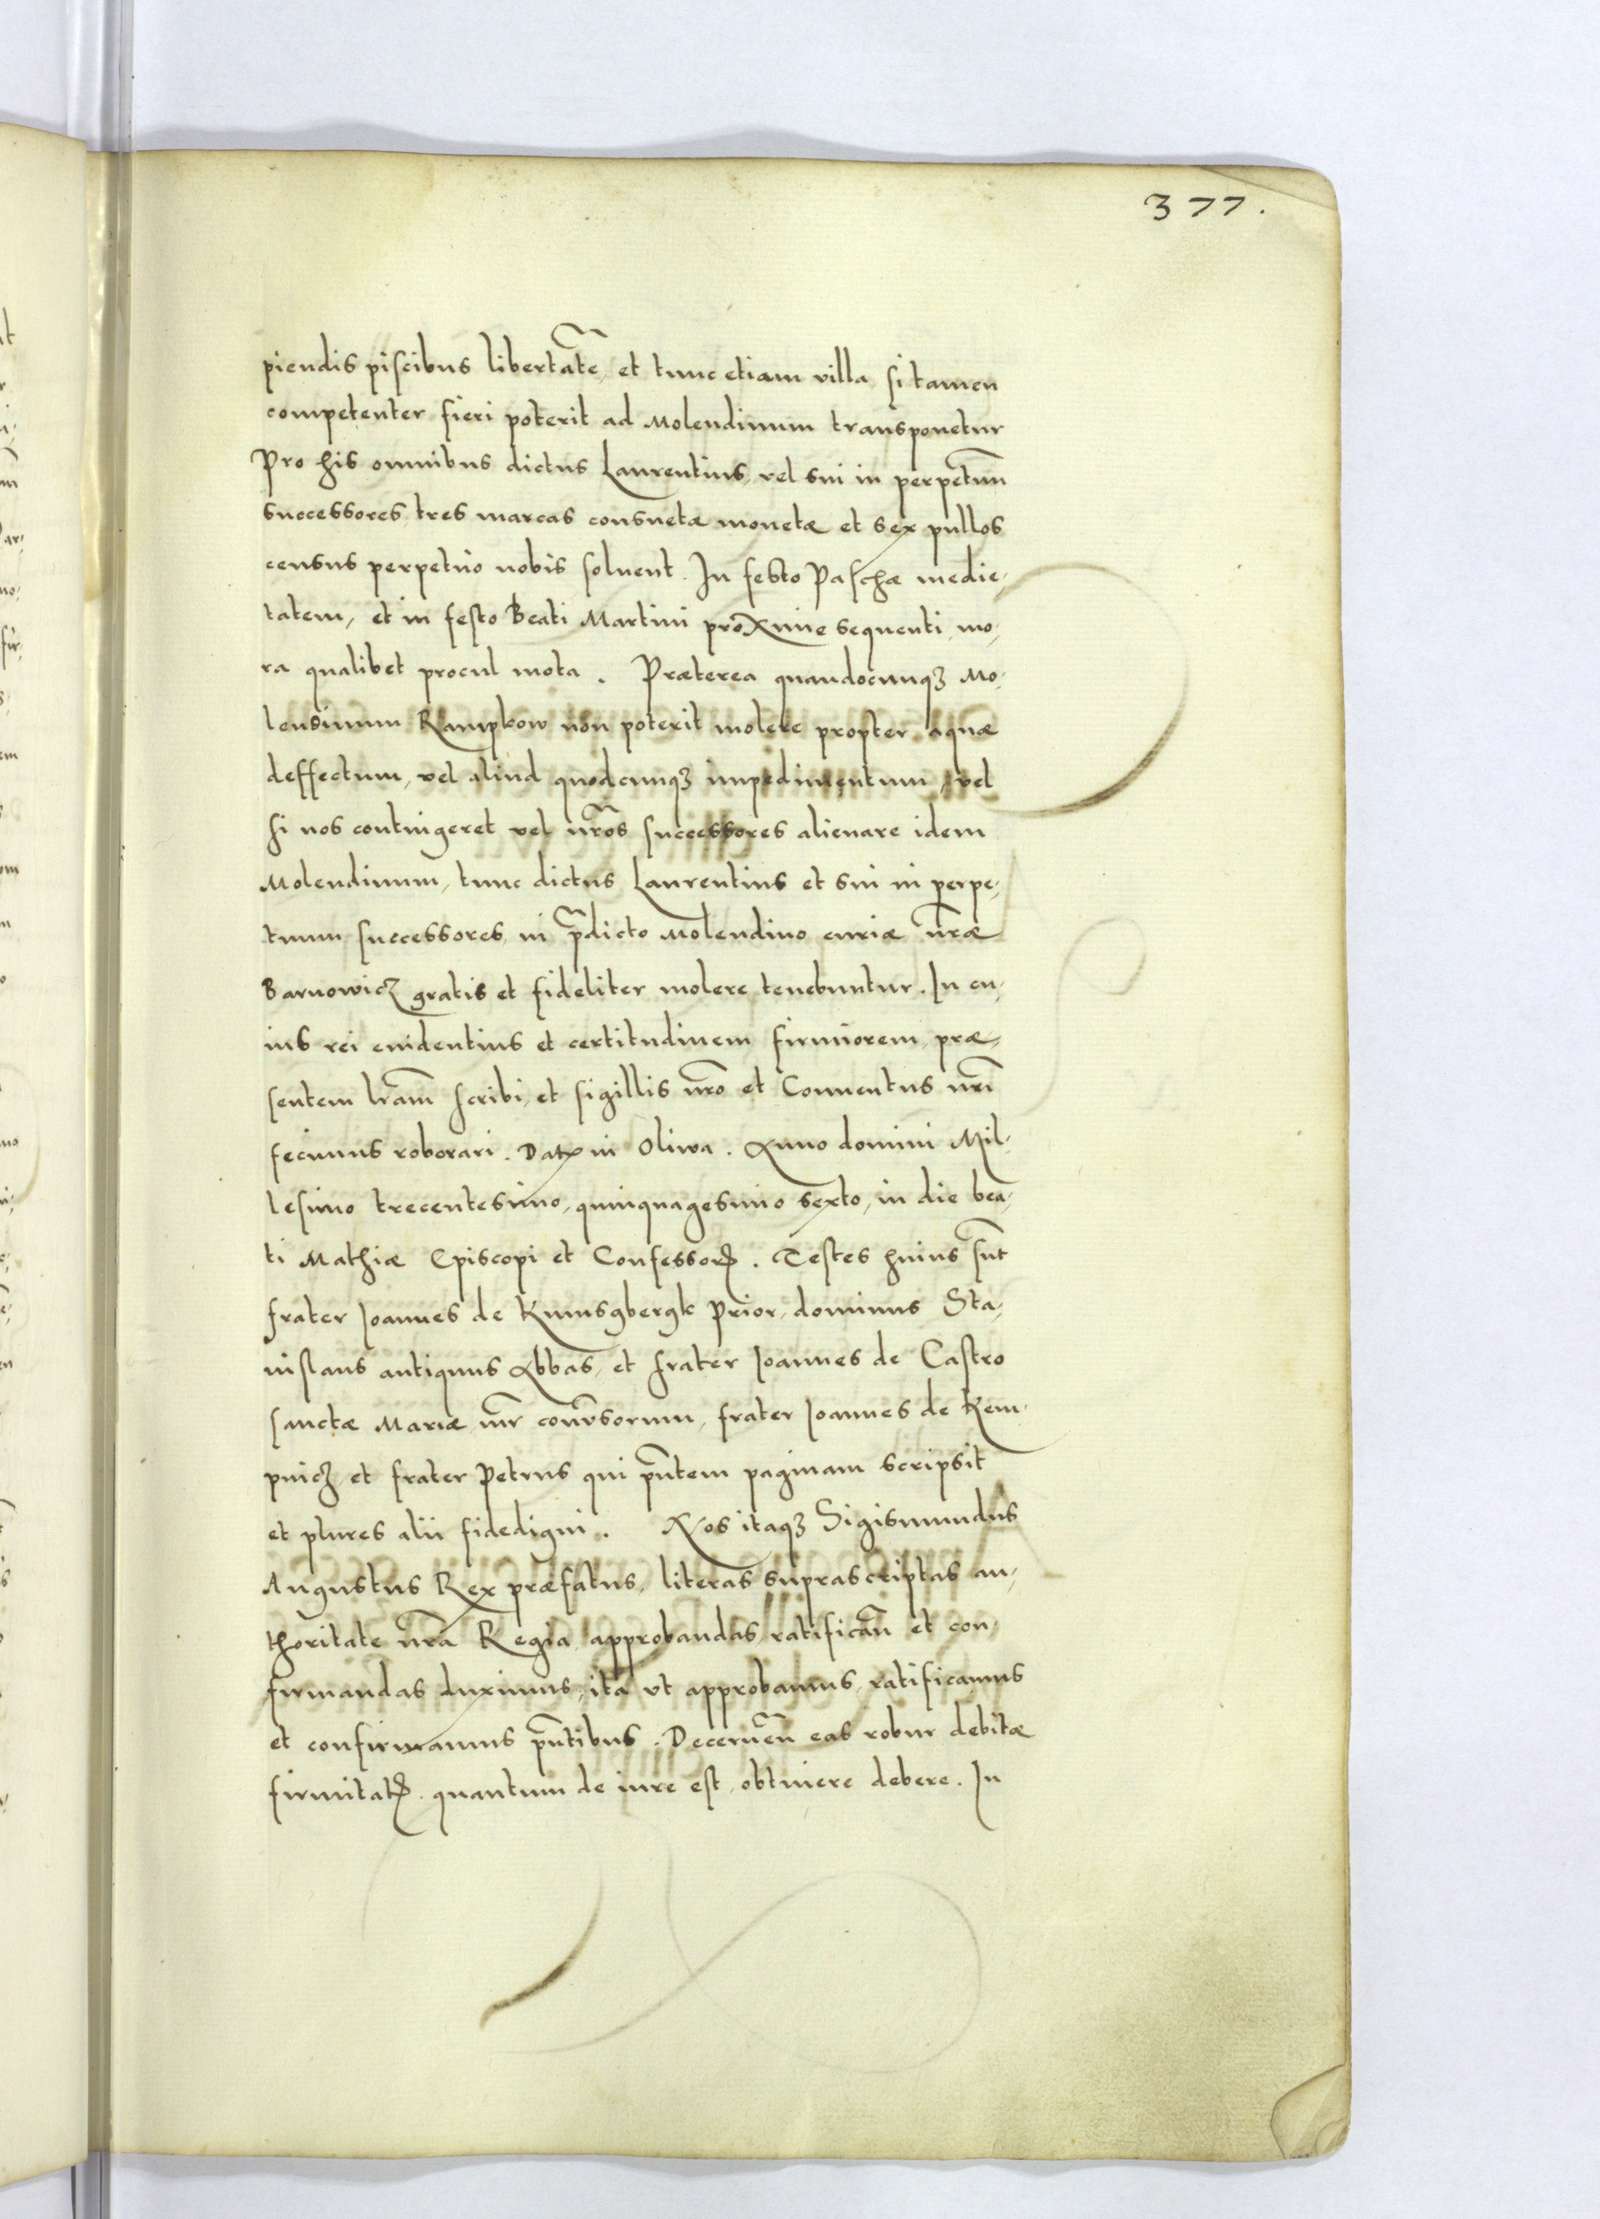 377.
piendis piscibus libertatē, et tunc etiam villa si tamen
competenter fieri poterit ad Molendinum transponetur
Pro his omnibus dictus Laurentius, vel sui in perpetuū
successores tres marcas consuetæ monetæ et sex pullos
census perpetuo nobis soluent. In festo Paschæ medie,
tatem, et in festo Beati Martini proxime sequenti, mo,
ra qualibet procul mota. Præterea quandocunqꝫ Mo,
lendinum Rampkow non poterit molere propter aquæ
deffectum, vel aliud quodcunqꝫ impedimentum, vel
si nos contingeret vel nr̄os successores alienare idem
Molendinum, tunc dictus Laurentius et sui in perpe,
tuum successores, in p̄dicto Molendino curiæ nr̄æ
Barnowicz gratis et fideliter molere tenebuntur. In cu,
ius rei euidentius et certitudinem firmiorem, præ,
sentem lr̄am scribi, et sigillis nr̄o et Conuentus nr̄i
fecimus roborari. Datꝝ in Oliwa. Anno domini Mil,
lesimo trecentesimo, quinquagesimo sexto, in die bea,
ti Mathiæ Episcopi et Confessorꝭ. Testes huius sūt
frater Joannes de Kunsgbergk Prior, dominus Sta,
nislaus antiquus Abbas, et frater Joannes de Castro
sanctæ Mariæ mr̄ conv̄sorum, frater Joannes de Kem,
pnicz et frater Petrus qui pn̄tem paginam scripsit
et plures alii fidedigni. Nos itaqꝫ Sigismundus
Augustus Rex præfatus, literas suprascriptas au,
thoritate nr̄a Regia approbandas, ratificān et con,
firmandas duximus, ita vt approbamus, ratificamus
et confirmamus pn̄tibus. Decernēn eas robur debitæ
firmitatꝭ. quantum de iure est, obtinere debere. In